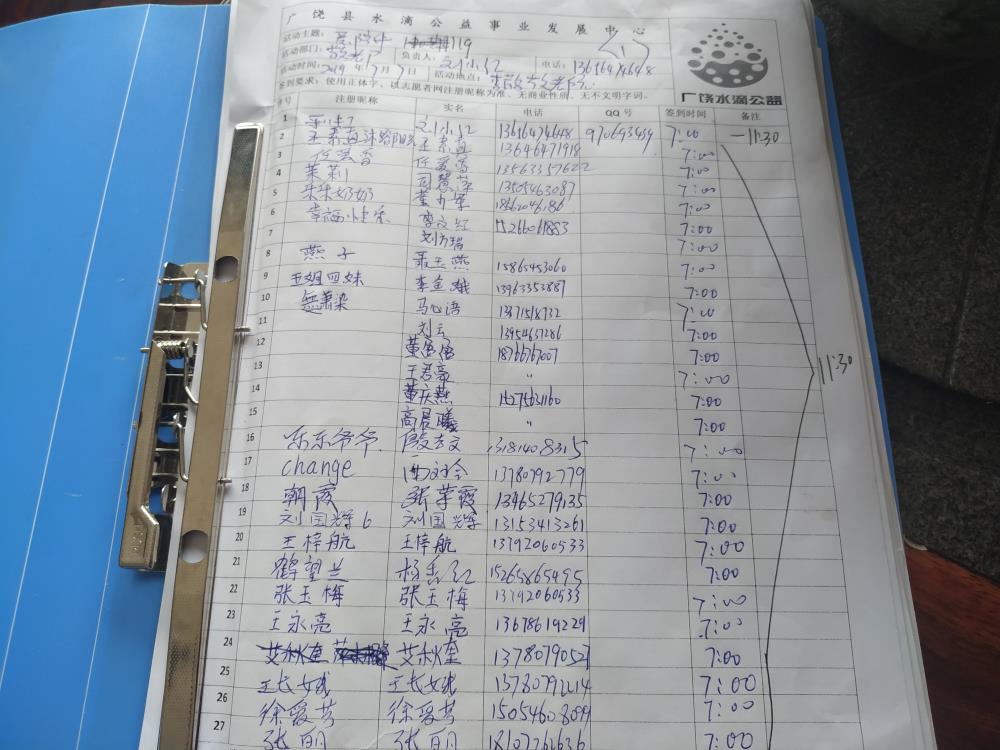 广饶县水滴公益事业发展中心
活动主题: 119
活动部门: 敬老 负责人: 刘小红 电话: 13656474648
活动时间: 2019年7月7日 活动地点:
签到要求: 使用正体字，以志愿者网注册昵称为准、无商业性质、无不文明字词。
广饶水滴公益
序号 注册昵称 实名 电话 QQ号 签到时间 备注
1 刘小红 13616474648 970693459 7:00 —11:30
2 王素真 13646471918 7:00
3 任爱香 任爱香 13563357622 7:00
4 茉莉 13505463087 7:00
5 朵朵奶奶 18562046186 7:00
6 幸福 李文红 15266061883 7:00
7 刘方瑞 7:00
8 燕子 聂玉燕 15865453060 7:00
9 五姐四妹 李金娥 13963353887 7:00
10 無萧染 马心语 7:00
11 刘云 13954637286 7:00
12 18766767007 7:00
王君豪 〃 7:00
13 董庆燕 15275631160 7:00
14 高晨曦 〃 7:00
15
16 乐乐爷爷 殷志文 13181408315 7:00
17 change 13780792779 7:00
18 朝霞 张翠霞 13465279135 7:00
19 刘国辉6 刘国辉 13153413261 7:00
20 王梓航 王梓航 13792060533 7:00
21 鹤望兰 杨秀红 15265865495 7:00
22 张玉梅 张玉梅 13792060533 7:00
23 王永亮 王永亮 13678619229 7:00
24 艾秋奎 艾秋奎 13780790527 7:00
25 王长城 王长城 13780792214 7:00
26 徐爱芳 徐爱芳 15054608099 7:00
27 张丽 张丽 18107262636 7:00
11:30